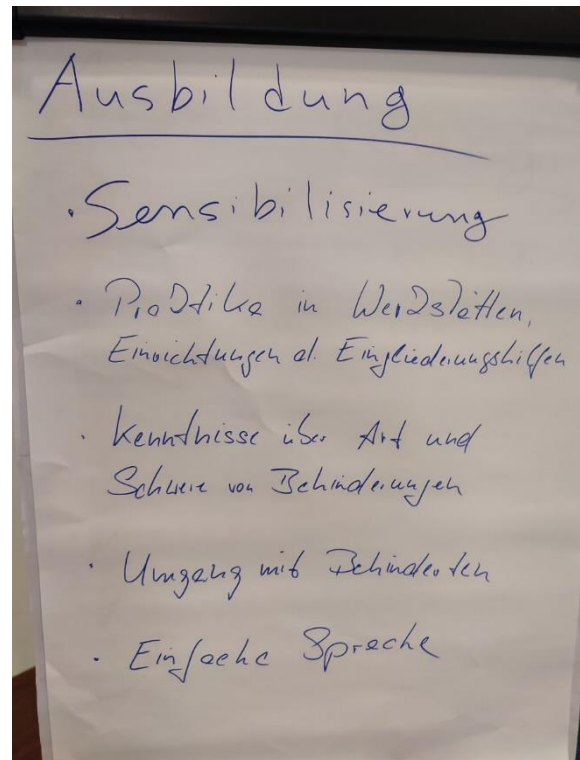 Ausbildung
· Sensibilisierung
· Praktika in Werkstätten,
Einrichtungen d. Eingliederungshilfen
· Kenntnisse über Art und
Schwere von Behinderungen
· Umgang mit Behinderten
· Einfache Sprache